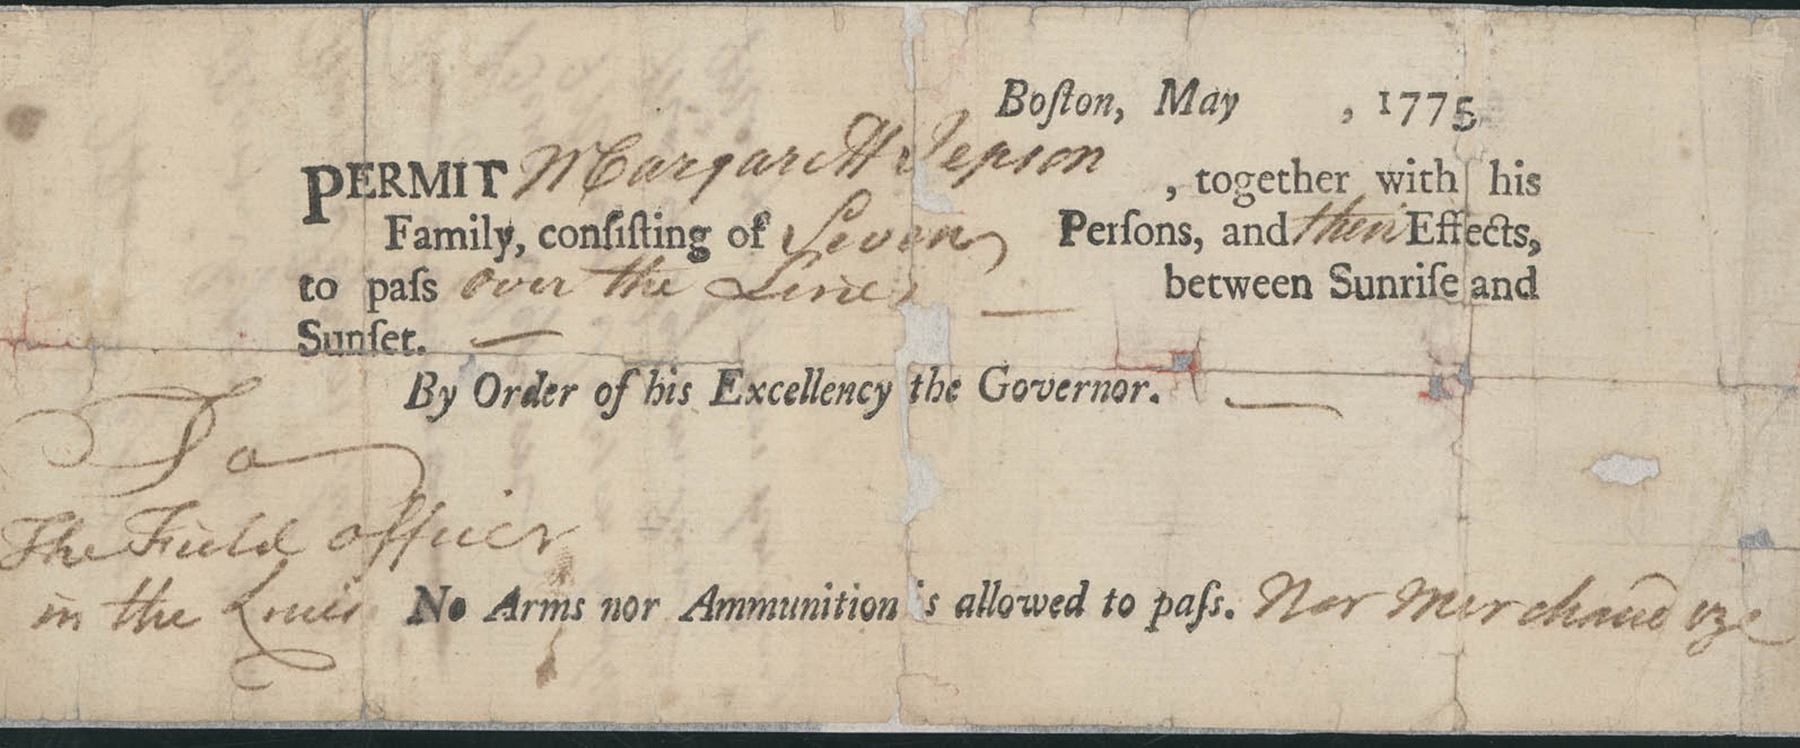 Boſton, May , 1775
PERMIT Margarett Jepson , together with his
Family, conſiſting of Seven Perſons, and their Effects,
to paſs over the Lines between Sunriſe and
Sunſet.
By Order of his Excellency the Governor.
To
The Field officer
in the Lines
No Arms nor Ammunition is allowed to paſs. Nor Merchandize